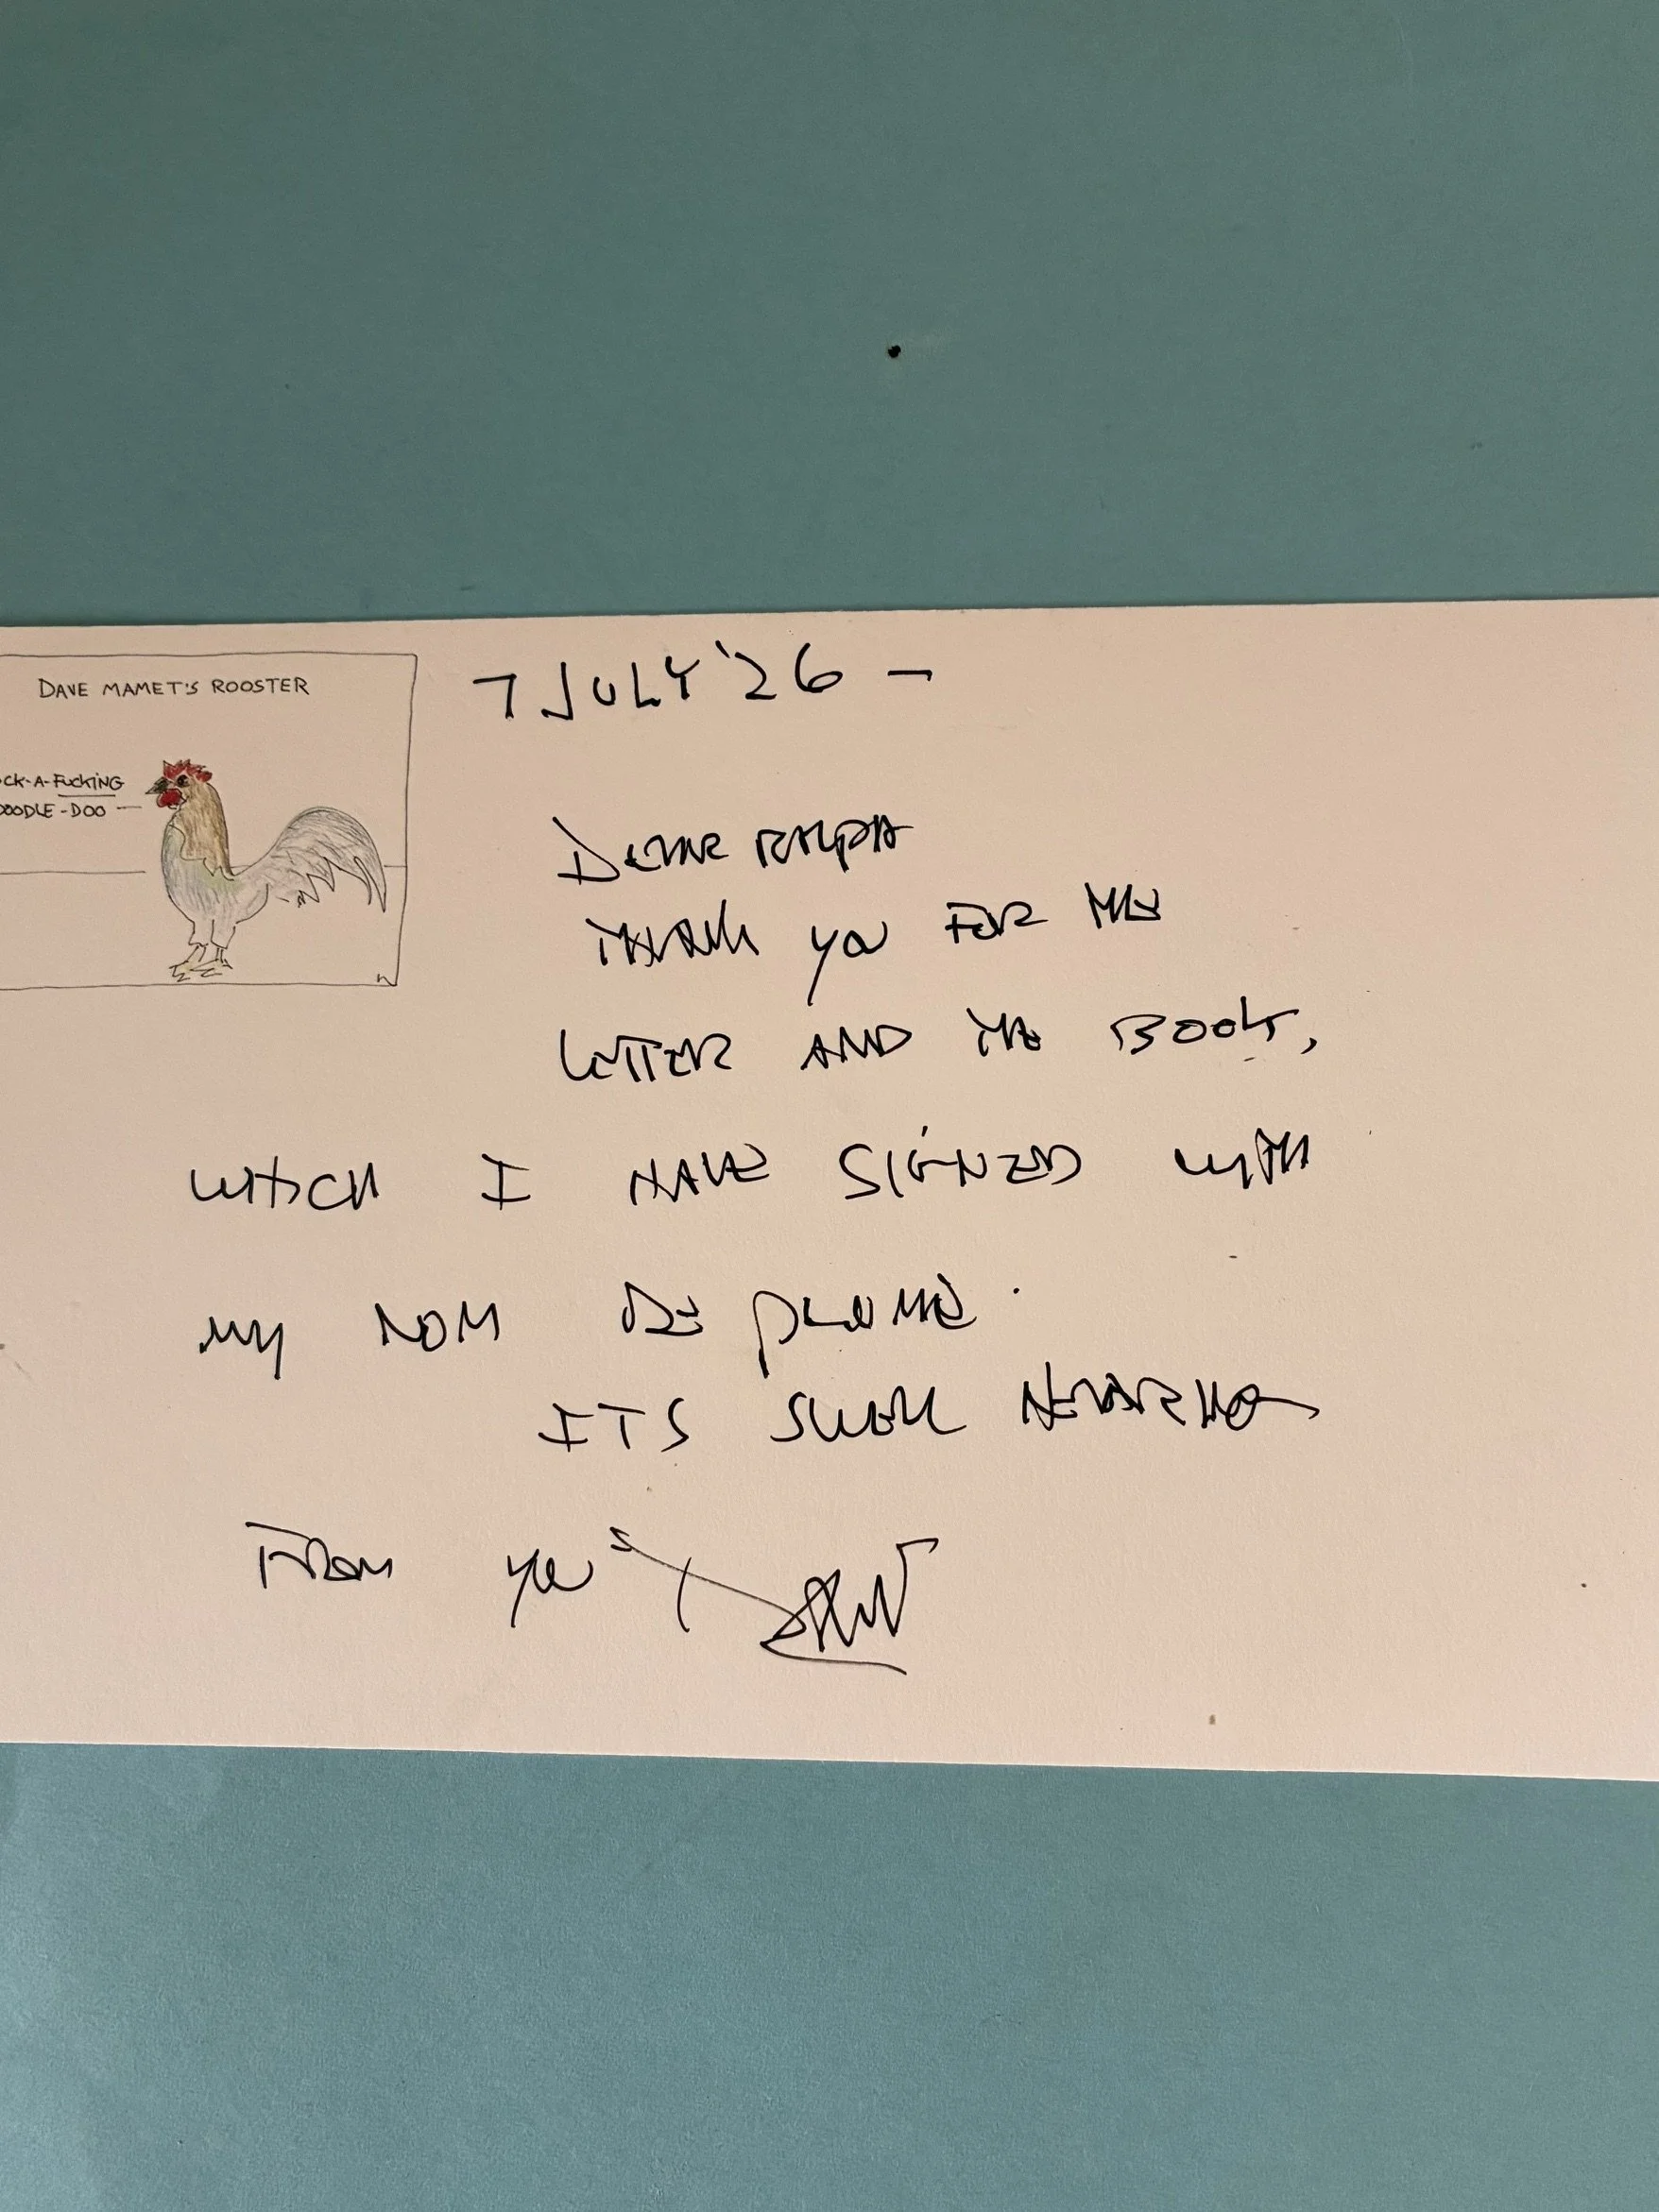 DAVE MAMET'S ROOSTER
CK-A-FUCKING
DOODLE-DOO
7 JULY '26 –
DEAR RALPH
THANK YOU FOR THE
LETTER AND THE BOOK,
WHICH I HAVE SIGNED WITH
MY NOM DE PLUME.
ITS SWELL HEARING
FROM YOU